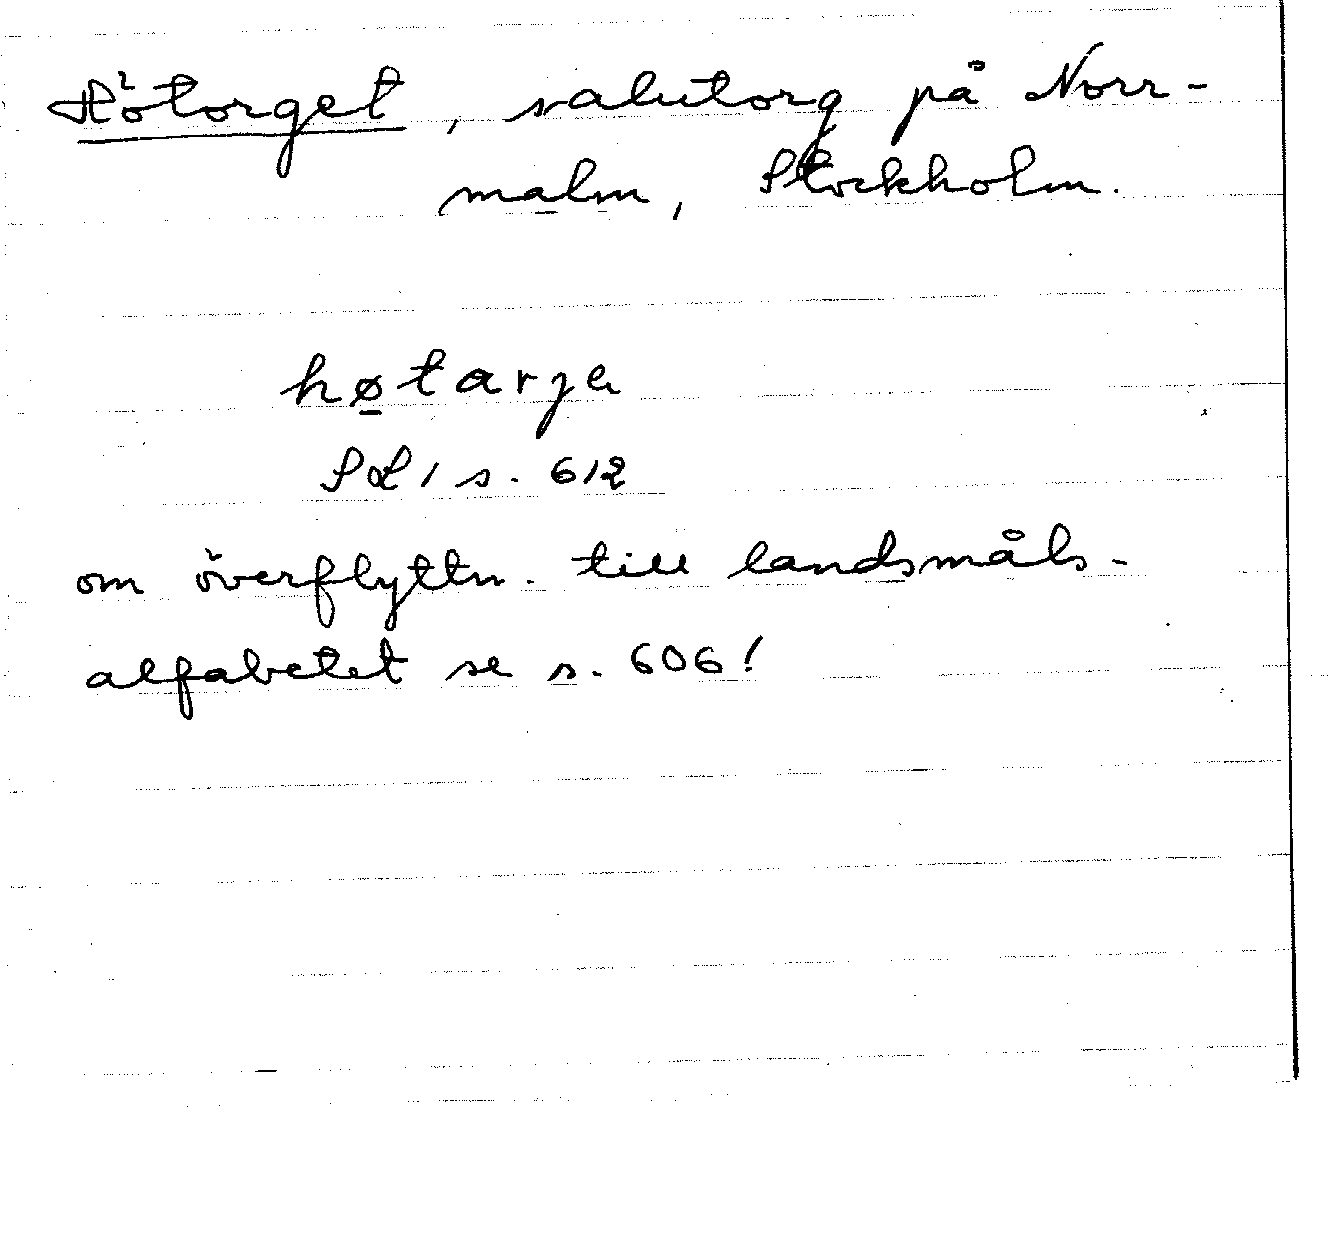 Hötorget, salutorg på Norr-
malm, Stockholm.
høtarja
SL 1 s. 612
om överflyttn. till landsmåls-
alfabetet se s. 606!